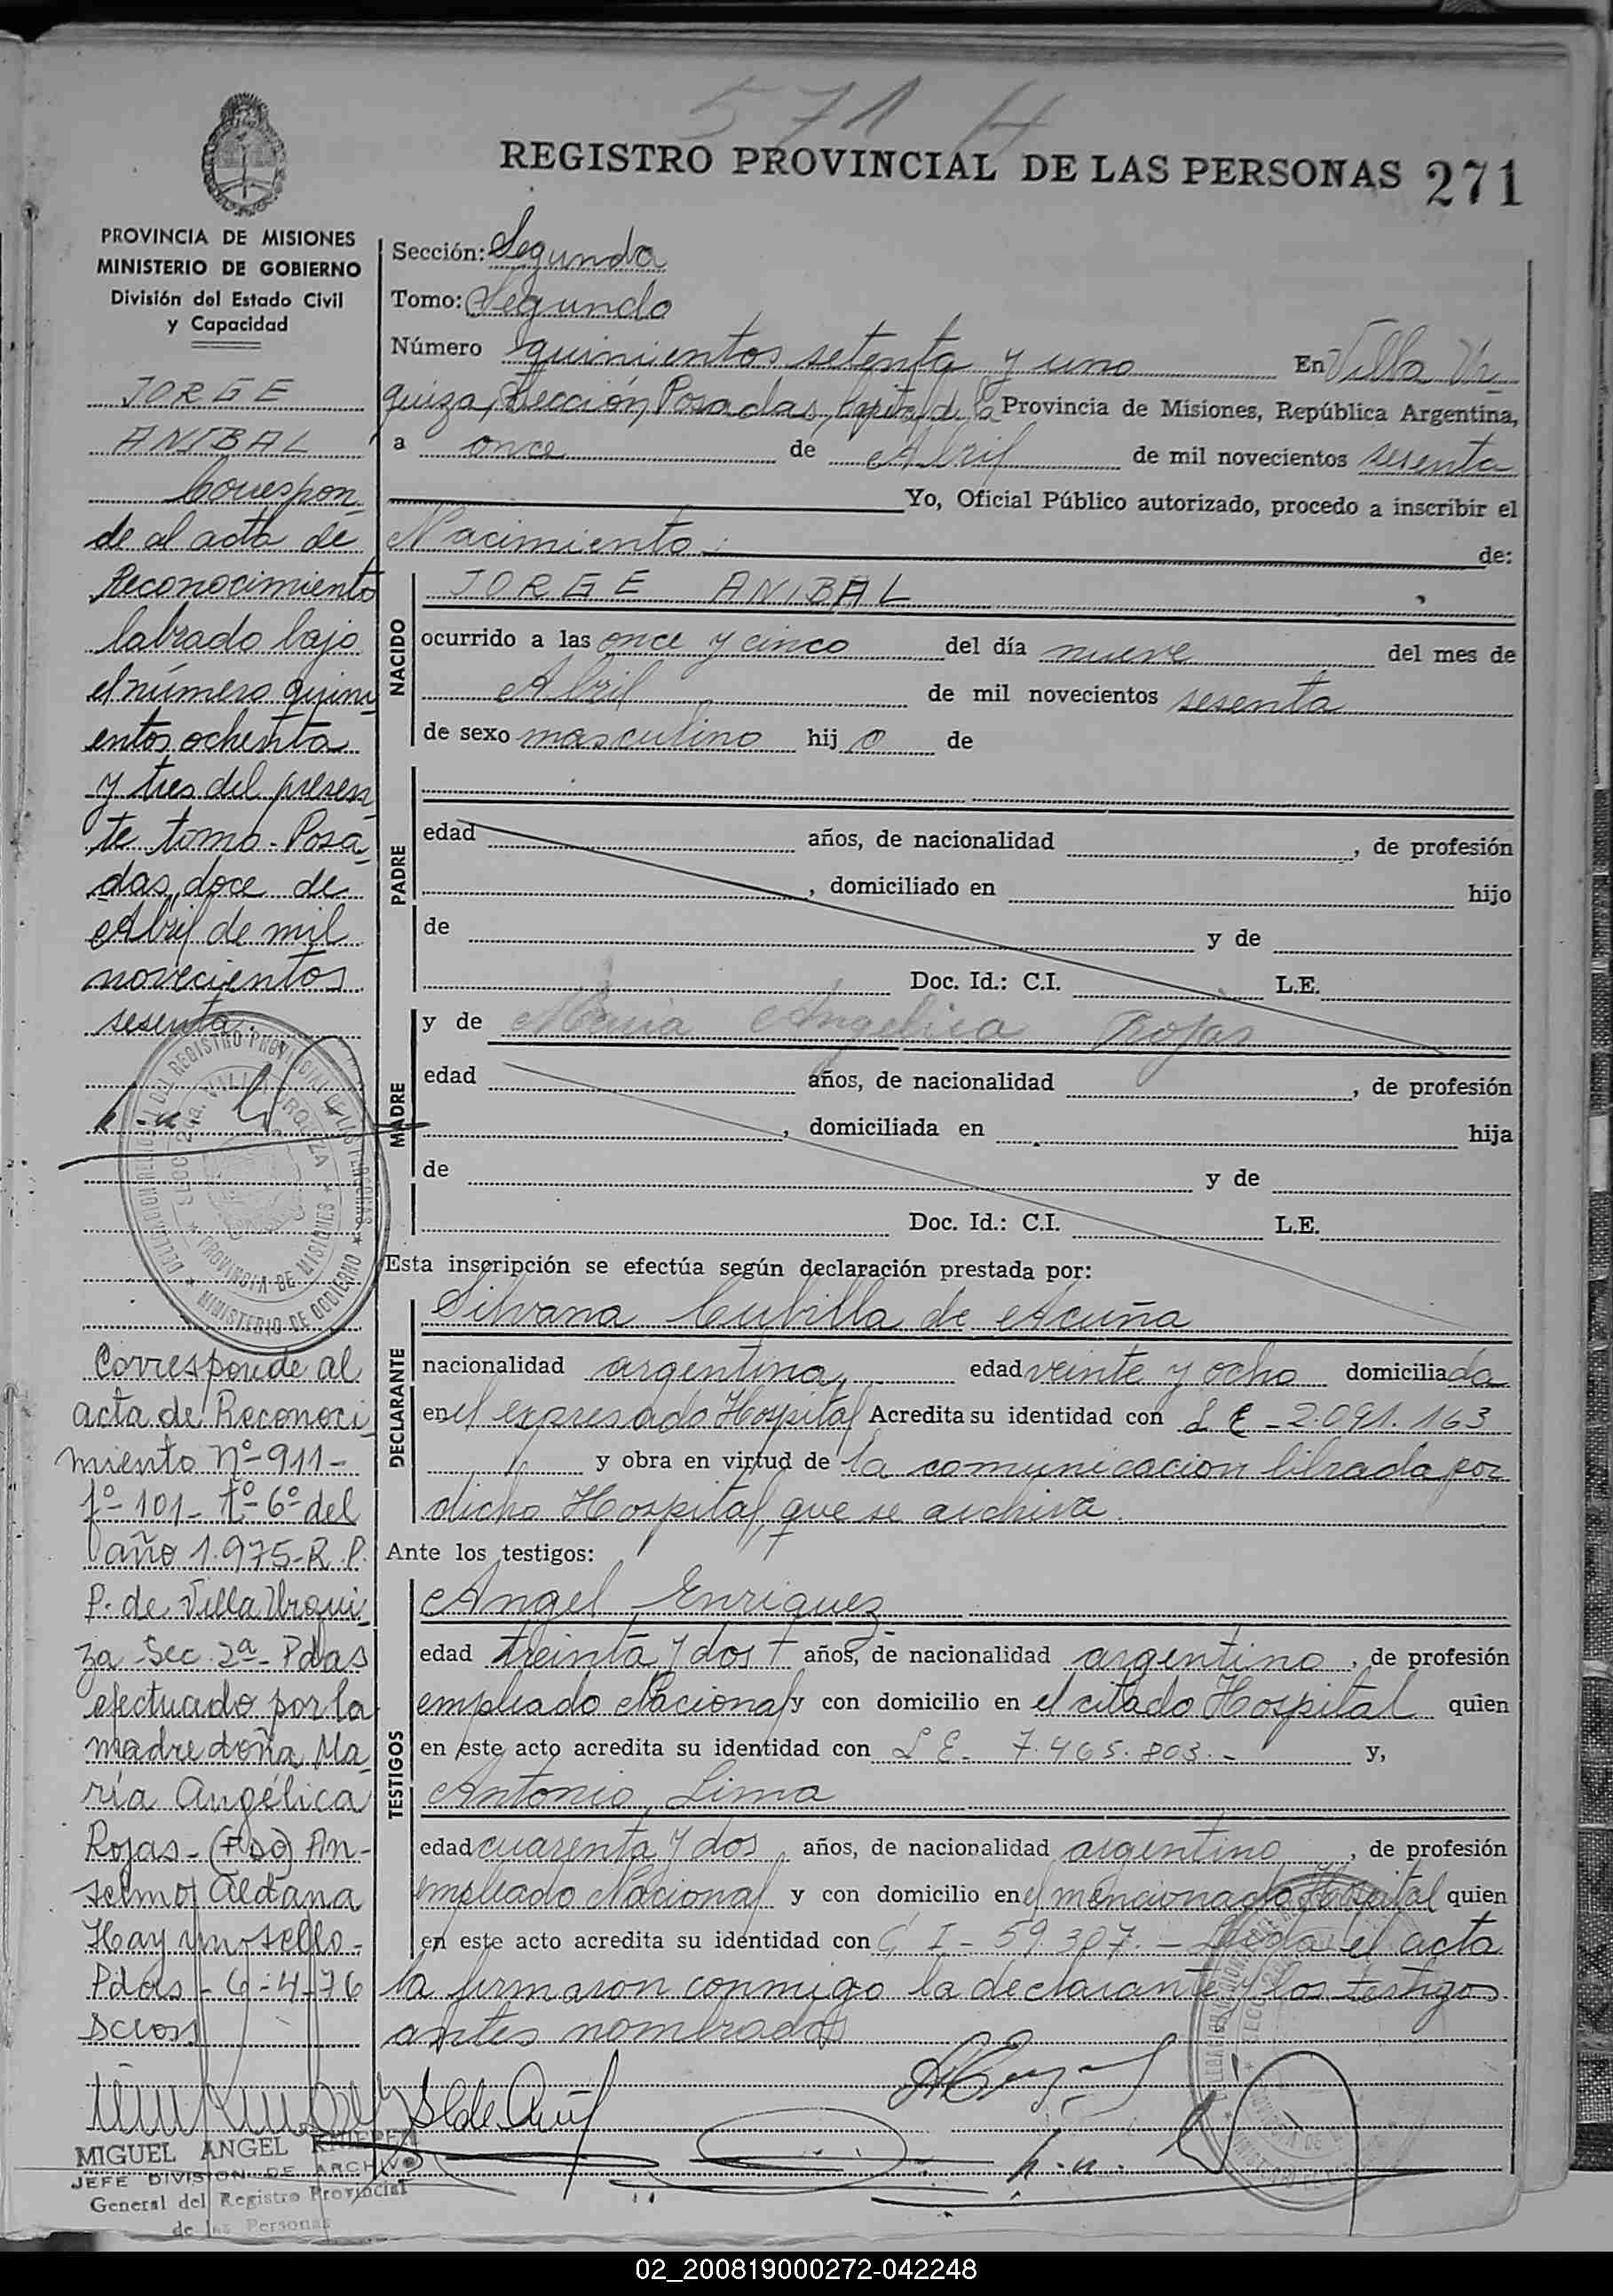 571 H
REGISTRO PROVINCIAL DE LAS PERSONAS 271
PROVINCIA DE MISIONES
MINISTERIO DE GOBIERNO
División del Estado Civil
y Capacidad
JORGE
ANIBAL
Correspon
de al acta de
Reconocimiento
labrado bajo
el número quini
entos ochenta
y tres del presen
te tomo - Posa
das, doce de
Abril de mil
novecientos
sesenta.
DELEGACION DEL REGISTRO PROVINCIAL DE LAS PERSONAS
SECC. 2da. VILLA URQUIZA
PROVINCIA DE MISIONES
MINISTERIO DE GOBIERNO
Corresponde al
acta de Reconoci
miento Nº 911-
fº- 101- Tº- 6º del
año 1.975- R. P.
P. de Villa Urqui
za - Sec. 2ª - Pdas
efectuado por la
madre doña Ma
ría Angélica
Rojas - (Fdo) An-
selmo Aldana
Hay un sello -
Pdas - 6-4-76
MIGUEL ANGEL
JEFE DIVISION DE ARCHIVO
General del Registro Provincial
de las Personas
Sección: Segunda
Tomo: Segundo
Número quinientos setenta y uno En Villa Ur
quiza, Sección, Posadas, Capital de la Provincia de Misiones, República Argentina,
a once de Abril de mil novecientos sesenta
Yo, Oficial Público autorizado, procedo a inscribir el
Nacimiento de:
NACIDO
JORGE ANIBAL
ocurrido a las once y cinco del día nueve del mes de
Abril de mil novecientos sesenta
de sexo masculino hij o de
PADRE
edad años, de nacionalidad , de profesión
, domiciliado en hijo
de y de
Doc. Id.: C.I. L.E.
MADRE
y de Maria Angelica Rojas
edad años, de nacionalidad , de profesión
, domiciliada en hija
de y de
Doc. Id.: C.I. L.E.
Esta inscripción se efectúa según declaración prestada por:
DECLARANTE
Silvana Cubilla de Acuña
nacionalidad argentina, edad veinte y ocho domiciliada
en el expresado Hospital Acredita su identidad con L E - 2.091.163
y obra en virtud de la comunicacion librada por
dicho Hospital, que se archiva.
Ante los testigos:
TESTIGOS
Angel Enriquez
edad treinta y dos años, de nacionalidad argentino, de profesión
empleado Nacional y con domicilio en el citado Hospital quien
en este acto acredita su identidad con L E. 7.465.803.- y,
Antonio Lima
edad cuarenta y dos años, de nacionalidad argentino, de profesión
empleado Nacional y con domicilio en el mencionado Hospital quien
en este acto acredita su identidad con C I - 59.307. - Leida el acta
la firmaron conmigo la declarante y los testigos
antes nombrados
02_200819000272-042248